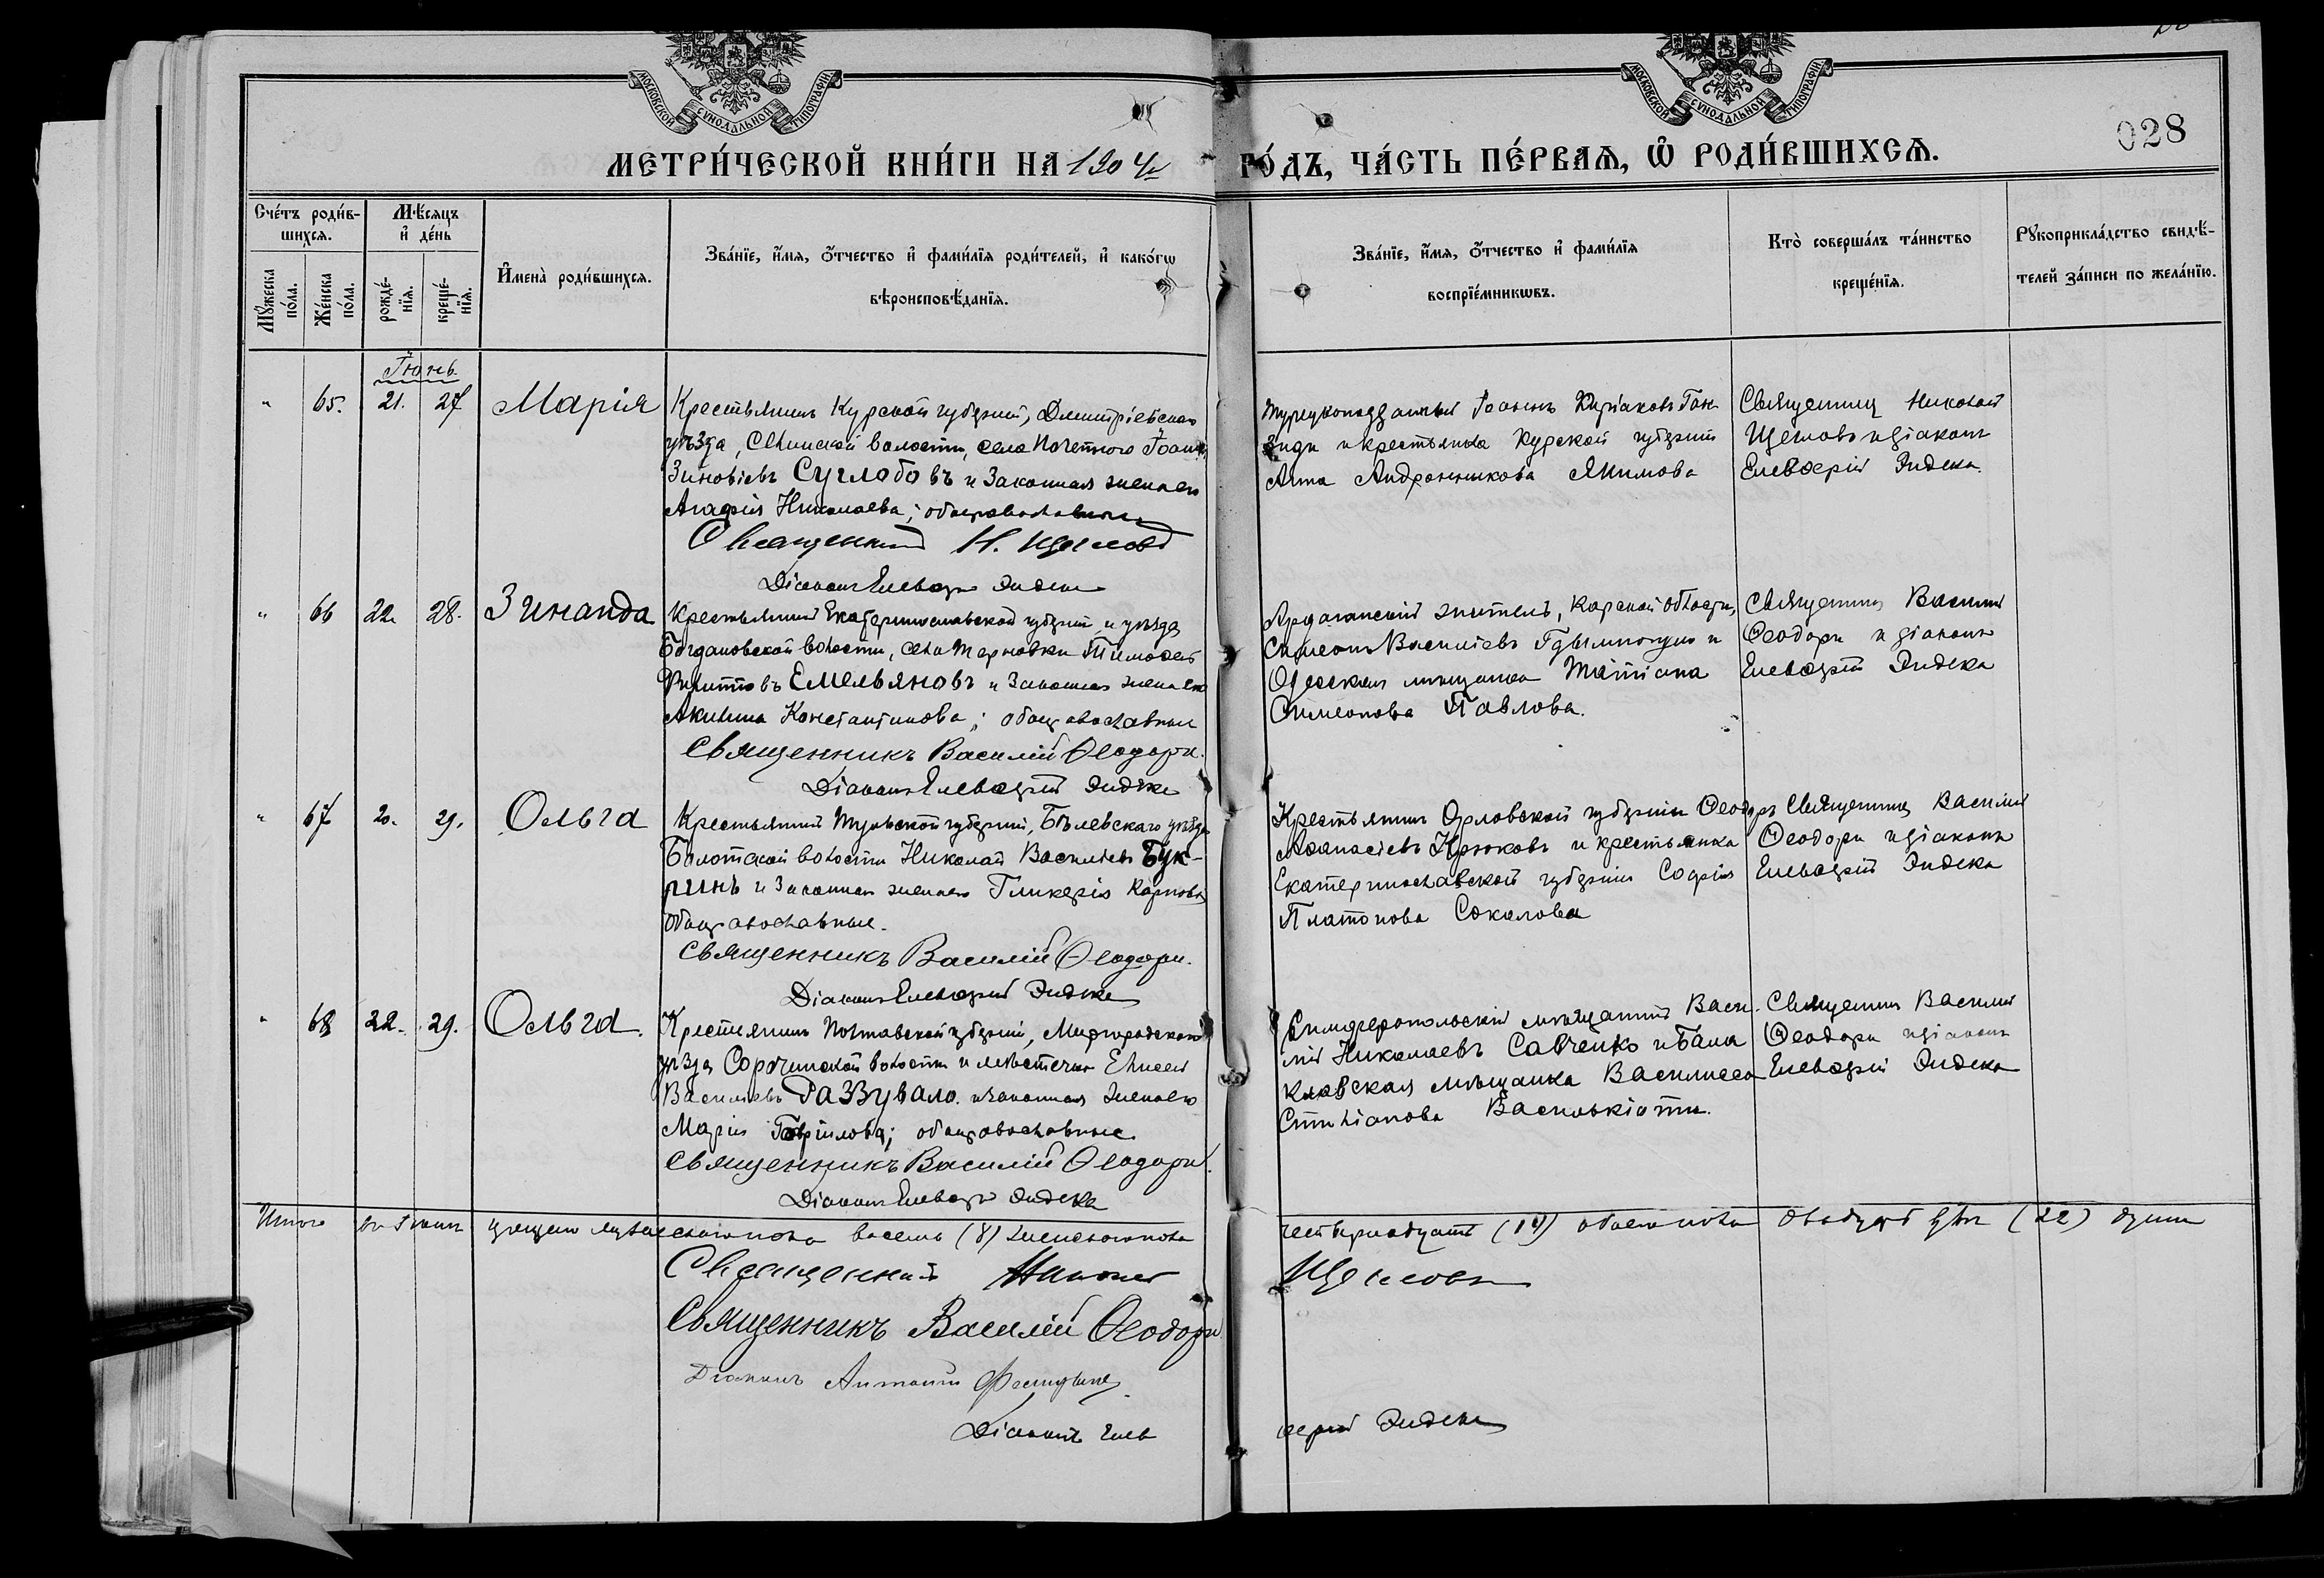 028
МОСКОВСКОЙ СѴНОДАЛЬНОЙ ТИПОГРАФІИ
МОСКОВСКОЙ СѴНОДАЛЬНОЙ ТИПОГРАФІИ
МЕТРИ́ЧЕСКОЙ КНИ́ГИ НА 1904 й ГО́ДЪ, ЧА́СТЬ ПЕ́РВАѦ, Ѽ РОДИ́ВШИХСѦ.
Сче́тъ роди́в-
шихсѧ.
Мꙋ́жеска по́ла.
Же́нска по́ла.
Мѣ́сѧцъ
и҆ де́нь
рожде́-
нїѧ.
креще́-
нїѧ.
И҆мена̀ роди́вшихсѧ.
Зва́нїе, и҆́мѧ, ѻ҆́тчество и҆ фами́лїѧ роди́телей, и҆ како́гѡ
вѣроисповѣ́данїѧ.
Зва́нїе, и҆́мѧ, ѻ҆́тчество и҆ фами́лїѧ
воспрїе́мникѡвъ.
Кто̀ соверша́лъ та́инство
креще́нїѧ.
Рꙋкоприкла́дство свидѣ́-
телей за́писи по жела́нїю.
Іюнь
" 65. 21. 27 Марія
Крестьянинъ Курской губерніи, Дмитріевскаго
уѣзда, волости, села Почетного Іоаннъ
Зиновіевъ Суглобовъ и законная жена его
Агафія Николаева; оба православные
Священникъ Н. Щегловъ
Діаконъ Елевферій Эидека
Турецкоподданный Іоаннъ Киріаковъ
и крестьянка Курской губерніи
Анна Андронникова Якимова
Священникъ Николай
Щегловъ и діаконъ
Елевферій Эидека
" 66 22. 28. Зинаида
Крестьянинъ Екатеринославской губерніи и уѣзда
Богдановской волости, села Терновки Тимофей
Филипповъ Емельяновъ и законная жена его
Акилина Константинова; оба православные
Священникъ Василій Ѳеодори.
Діаконъ Елевферій Эидека
Ардаганскій житель, Карской области,
Симеонъ Василіевъ и
Одесская мѣщанка Татіана
Симеонова Павлова.
Священникъ Василій
Ѳеодори и діаконъ
Елевферій Эидека
" 67 20. 29. Ольга
Крестьянинъ Тульской губерніи, Бѣлевскаго уѣзда
Болотской волости Николай Василіевъ Бук-
ринъ и законная жена его Гликерія Карпова
оба православные.
Священникъ Василій Ѳеодори.
Діаконъ Елевферій Эидека
Крестьянинъ Орловской губерніи Ѳеодоръ
Аѳанасіевъ Крюковъ и крестьянка
Екатеринославской губерніи Софія
Платонова Соколова
Священникъ Василій
Ѳеодори и діаконъ
Елевферій Эидека
" 68 22. 29. Ольга.
Крестьянинъ Полтавской губерніи, Миргородскаго
уѣзда Сорочинской волости и мѣстечка Елисей
Василіевъ Раззувало и законная жена его
Марія Гавріилова; оба православные
Священникъ Василій Ѳеодори.
Діаконъ Елевферій Эидека
Симферопольскій мѣщанинъ Васи-
лій Николаевъ Савченко и Бала
клавская мѣщанка Василисса
Стиліанова Василькіоти.
Священникъ Василій
Ѳеодори и діаконъ
Елевферій Эидека
Итого въ Іюнѣ крещено мужескаго пола восемь (8) женскаго пола четырнадцать (14) обоего пола двадцать двѣ (22) души
Священникъ Николай Щегловъ
Священникъ Василій Ѳеодори
Діаконъ Антоній
Діаконъ Елевферій Эидека